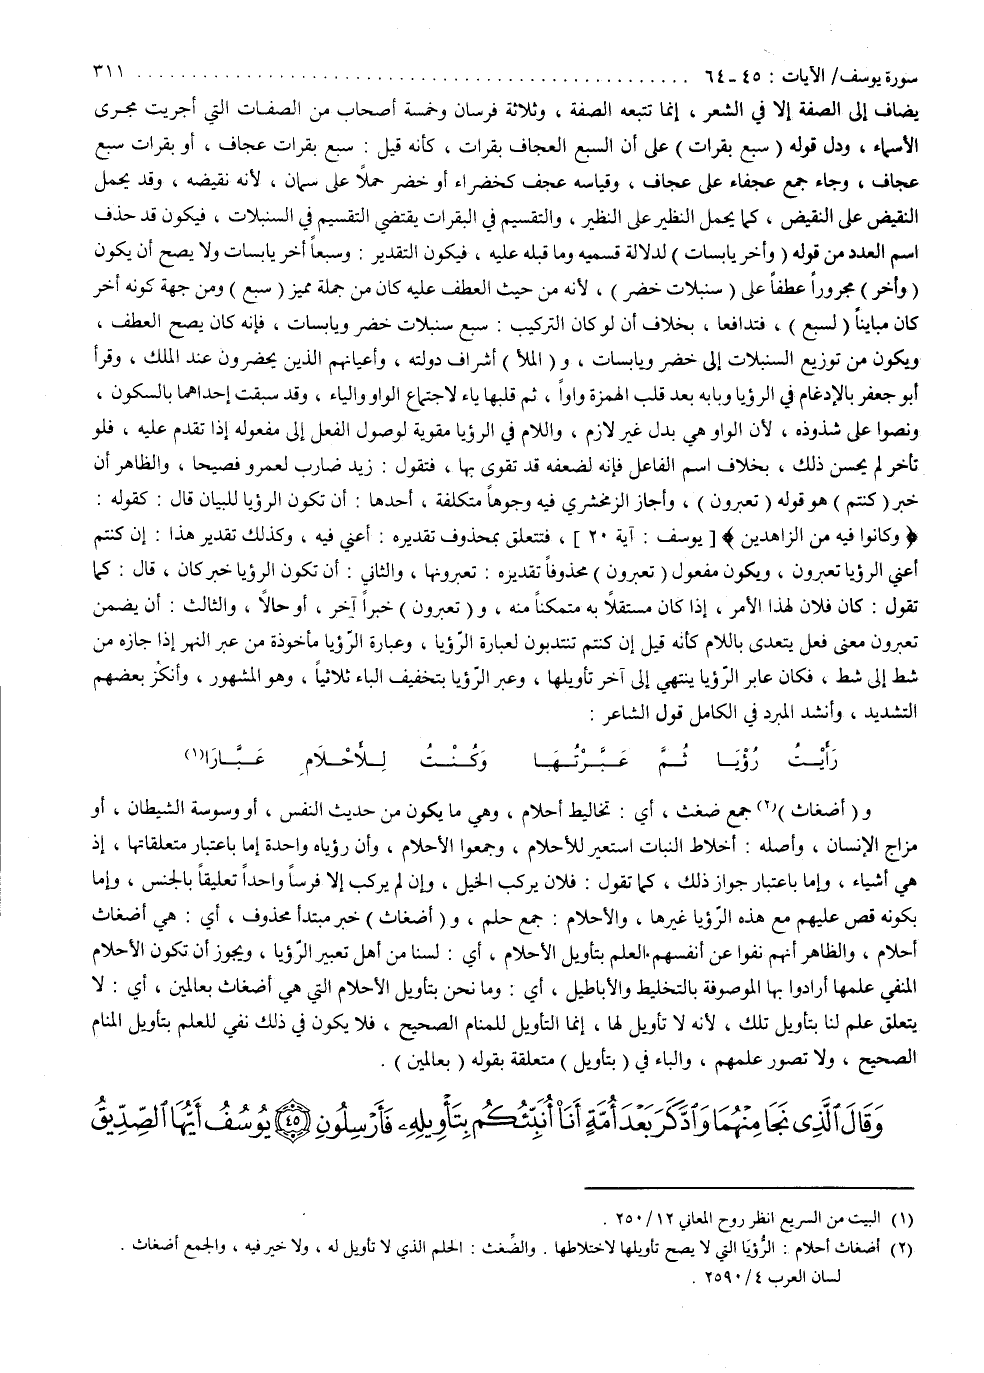 سورة يوسف/ الآيات : ٤٥ ـ ٦٤ ................................................ ٣١١
يضاف إلى الصفة إلا في الشعر ، إنما تتبعه الصفة ، وثلاثة فرسان وخمسة أصحاب من الصفات التي أجريت مجرى
الأسماء ، ودل قوله ( سبع بقرات ) على أن السبع العجاف بقرات ، كأنه قيل : سبع بقرات عجاف ، أو بقرات سبع
عجاف ، وجاء جمع عجفاء على عجاف ، وقياسه عجف كخضراء أو خضر حملاً على سمان ، لأنه نقيضه ، وقد يحمل
النقيض على النقيض ، كما يحمل النظير على النظير ، والتقسيم في البقرات يقتضي التقسيم في السنبلات ، فيكون قد حذف
اسم العدد من قوله ( وأخر يابسات ) لدلالة قسميه وما قبله عليه ، فيكون التقدير : وسبعاً أخر يابسات ولا يصح أن يكون
( وأخر ) مجروراً عطفاً على ( سنبلات خضر ) ، لأنه من حيث العطف عليه كان من جملة مميز ( سبع ) ومن جهة كونه أخر
كان مبايناً ( لسبع ) ، فتدافعا ، بخلاف أن لو كان التركيب : سبع سنبلات خضر ويابسات ، فإنه كان يصح العطف ،
ويكون من توزيع السنبلات إلى خضر ويابسات ، و ( الملأ ) أشراف دولته ، وأعيانهم الذين يحضرون عند الملك ، وقرأ
أبو جعفر بالإدغام في الرؤيا وبابه بعد قلب الهمزة واواً ، ثم قلبها ياء لاجتماع الواو والياء ، وقد سبقت إحداهما بالسكون ،
ونصوا على شذوذه ، لأن الواو هي بدل غير لازم ، واللام في الرؤيا مقوية لوصول الفعل إلى مفعوله إذا تقدم عليه ، فلو
تأخر لم يحسن ذلك ، بخلاف اسم الفاعل فإنه لضعفه قد تقوى بها ، فتقول : زيد ضارب لعمرو فصيحا ، والظاهر أن
خبر ( كنتم ) هو قوله ( تعبرون ) ، وأجاز الزمخشري فيه وجوهاً متكلفة ، أحدها : أن تكون الرؤيا للبيان قال : كقوله :
﴿ وكانوا فيه من الزاهدين ﴾ [ يوسف : آية ٢٠ ] ، فتتعلق بمحذوف تقديره : أعني فيه ، وكذلك تقدير هذا : إن كنتم
أعني الرؤيا تعبرون ، ويكون مفعول ( تعبرون ) محذوفاً تقديره : تعبرونها ، والثاني : أن تكون الرؤيا خبر كان ، قال : كما
تقول : كان فلان لهذا الأمر ، إذا كان مستقلاً به متمكناً منه ، و ( تعبرون ) خبراً آخر ، أو حالاً ، والثالث : أن يضمن
تعبرون معنى فعل يتعدى باللام كأنه قيل إن كنتم تنتدبون لعبارة الرّؤيا ، وعبارة الرّؤيا مأخوذة من عبر النهر إذا جازه من
شط إلى شط ، فكان عابر الرّؤيا ينتهي إلى آخر تأويلها ، وعبر الرّؤيا بتخفيف الباء ثلاثياً ، وهو المشهور ، وأنكر بعضهم
التشديد ، وأنشد المبرد في الكامل قول الشاعر :
رَأَيْتُ رُؤْيَا ثُمَّ عَبَّرْتُهَا وَكُنْتُ لِلْأَحْلَامِ عَبَّارَا(١)
و ( أضغاث )(٢) جمع ضغث ، أي : تخاليط أحلام ، وهي ما يكون من حديث النفس ، أو وسوسة الشيطان ، أو
مزاج الإنسان ، وأصله : أخلاط النبات استعير للأحلام ، وجمعوا الأحلام ، وأن رؤياه واحدة إما باعتبار متعلقاتها ، إذ
هي أشياء ، وإما باعتبار جواز ذلك ، كما تقول : فلان يركب الخيل ، وإن لم يركب إلا فرساً واحداً تعليقاً بالجنس ، وإما
بكونه قص عليهم مع هذه الرّؤيا غيرها ، والأحلام : جمع حلم ، و ( أضغاث ) خبر مبتدأ محذوف ، أي : هي أضغاث
أحلام ، والظاهر أنهم نفوا عن أنفسهم العلم بتأويل الأحلام ، أي : لسنا من أهل تعبير الرّؤيا ، ويجوز أن تكون الأحلام
المنفي علمها أرادوا بها الموصوفة بالتخليط والأباطيل ، أي : وما نحن بتأويل الأحلام التي هي أضغاث بعالمين ، أي : لا
يتعلق علم لنا بتأويل تلك ، لأنه لا تأويل لها ، إنما التأويل للمنام الصحيح ، فلا يكون في ذلك نفي للعلم بتأويل المنام
الصحيح ، ولا تصور علمهم ، والباء في ( بتأويل ) متعلقة بقوله ( بعالمين ) .
وَقَالَ ٱلَّذِى نَجَا مِنْهُمَا وَٱدَّكَرَ بَعْدَ أُمَّةٍ أَنَا۠ أُنَبِّئُكُم بِتَأْوِيلِهِۦ فَأَرْسِلُونِ ﴿٤٥﴾ يُوسُفُ أَيُّهَا ٱلصِّدِّيقُ
(١) البيت من السريع انظر روح المعاني ١٢/ ٢٥٠ .
(٢) أضغاث أحلام : الرُّؤيَا التي لا يصح تأويلها لاختلاطها . والضِّغث : الحلم الذي لا تأويل له ، ولا خير فيه ، والجمع أضغاث .
لسان العرب ٤/ ٢٥٩٠ .